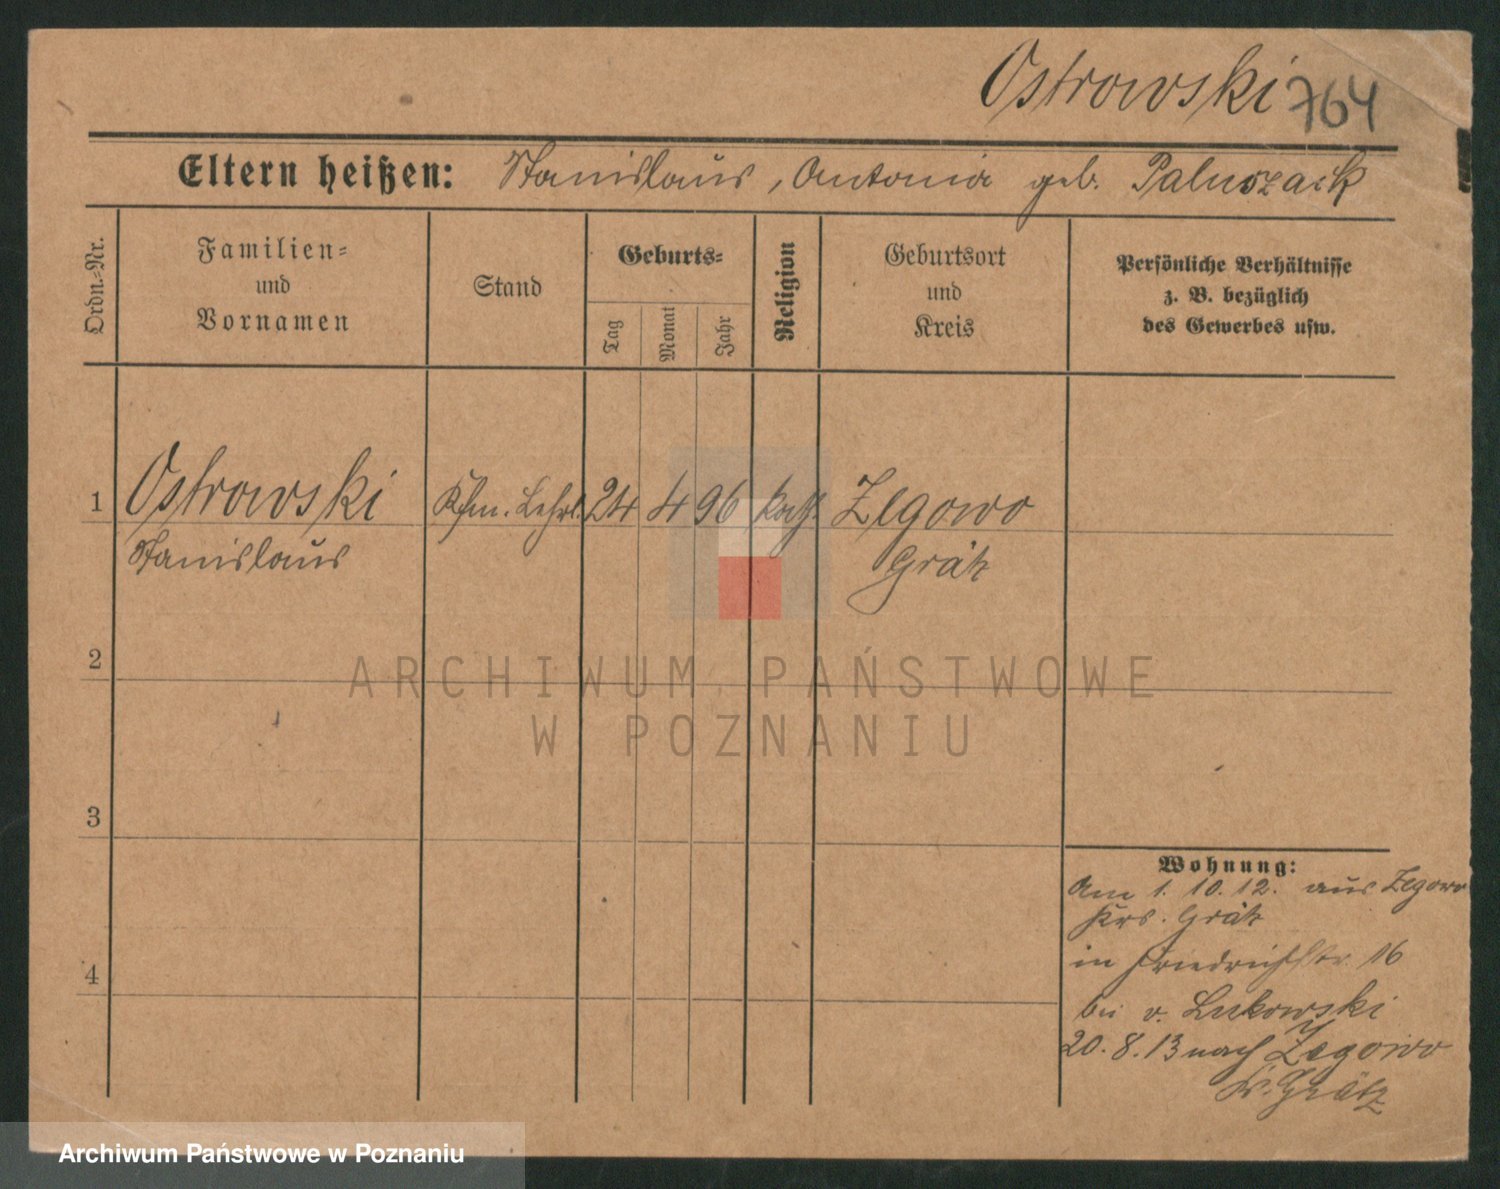 Ostrowski 764
Eltern heißen: Stanislaus, Antonia geb. Paluszack
Ordn.-Nr.
Familien-
und
Vornamen
Stand
Geburts-
Tag
Monat
Jahr
Religion
Geburtsort
und
Kreis
Persönliche Verhältnisse
z. B. bezüglich
des Gewerbes usw.
1 Ostrowski Kfm. Lehrl. 24 4 96 kath. Zegowo
Stanislaus Grätz
2
ARCHIWUM PAŃSTWOWE
W POZNANIU
3
Wohnung:
Am 1. 10. 12. aus Zegowo
Krs. Grätz
in Friedrichstr. 16
4
bei v. Lukowski
20. 8. 13 nach Zegowo
Kr. Grätz
Archiwum Państwowe w Poznaniu